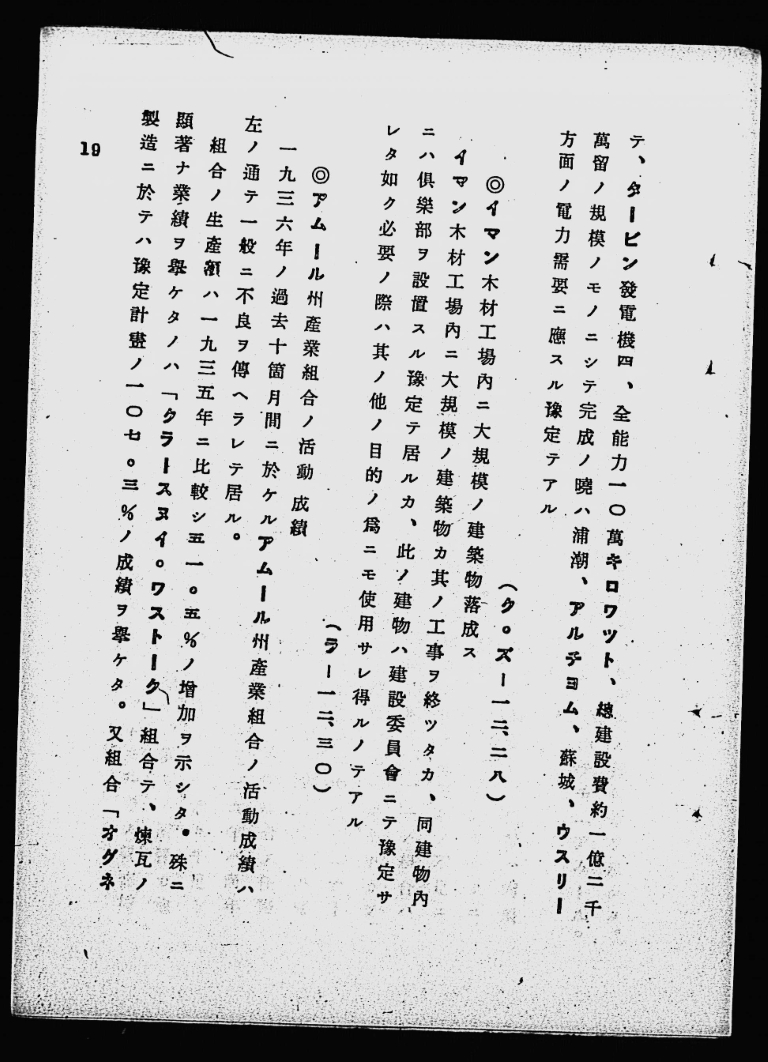 テ、タービン發電機四、全能力一〇萬キロワット、總建設費約一億二千
萬留ノ規模ノモノニシテ完成ノ曉ハ浦潮、アルチヨム、蘇城、ウスリー
方面ノ電力需要ニ應スル豫定テアル
(ク。ズー一二、二八)
◎イマン木材工場內ニ大規模ノ建築物落成ス
イマン木材工場內ニ大規模ノ建築物カ其ノ工事ヲ終ツタカ、同建物內
ニハ俱樂部ヲ設置スル豫定テ居ルカ、此ノ建物ハ建設委員會ニテ豫定サ
レタ如ク必要ノ際ハ其ノ他ノ目的ノ爲ニモ使用サレ得ルノテアル
(ラー一二、三〇)
◎アムール州產業組合ノ活動成績
一九三六年ノ過去十箇月間ニ於ケルアムール州產業組合ノ活動成績ハ
左ノ通テ一般ニ不良ヲ傳ヘラレテ居ル。
組合ノ生產額ハ一九三五年ニ比較シ五一。五%ノ增加ヲ示シタ。殊ニ
顯著ナ業績ヲ擧ケタノハ「クラースヌイ。ワストーク」組合テ、煉瓦ノ
製造ニ於テハ豫定計畫ノ一〇七。三%ノ成績ヲ擧ケタ。又組合「オグネ
19